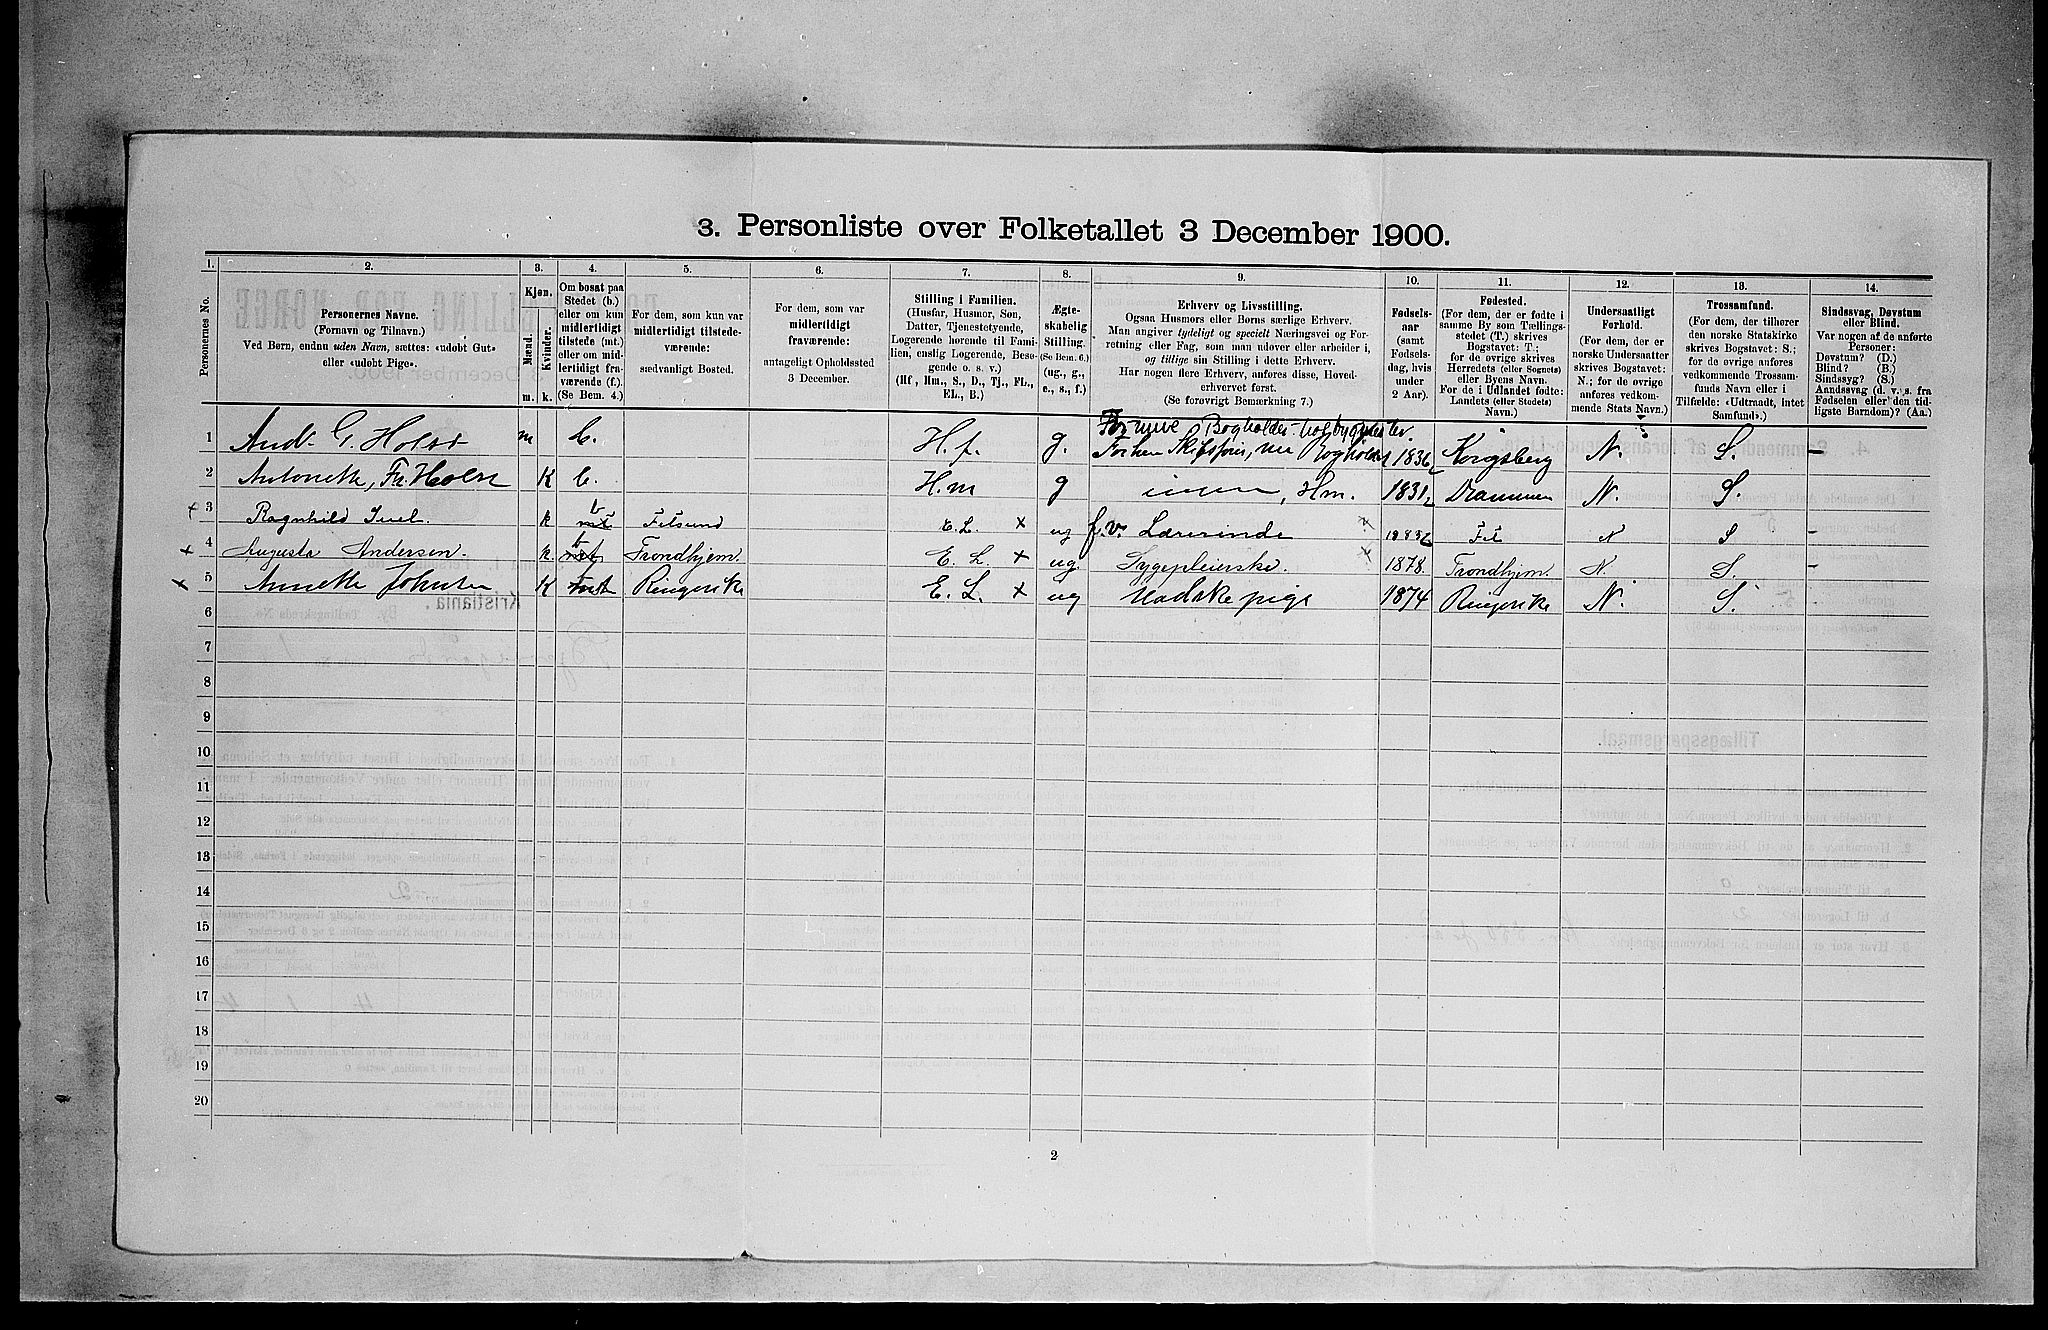 3. Personliste over Folketallet 3 December 1900.
1. 2. 3. 4. 5. 6. 7. 8. 9. 10. 11. 12. 13. 14.
Personernes No.
Personernes Navne.
(Fornavn og Tilnavn.)
Ved Børn, endnu uden Navn, sættes: «udøbt Gut»
eller «udøbt Pige».
Kjøn.
Mænd.
Kvinder.
m. k.
Om bosat paa
Stedet (b.)
eller om kun
midlertidigt
tilstede (mt.)
eller om mid-
lertidigt fra-
værende (f.)
(Se Bem. 4.)
For dem, som kun var
midlertidigt tilstede-
værende:
sædvanligt Bosted.
For dem, som var
midlertidigt
fraværende:
antageligt Opholdssted
3 December.
Stilling i Familien.
(Husfar, Husmor, Søn,
Datter, Tjenestetyende,
Logerende hørende til Fami-
lien, enslig Logerende, Besø-
gende o. s. v.)
(Hf, Hm., S., D., Tj., FL.,
EL., B.)
Ægte-
skabelig
Stilling.
(Se Bem. 6.)
(ug., g.,
e., s., f.)
Erhverv og Livsstilling.
Ogsaa Husmors eller Børns særlige Erhverv.
Man angiver tydeligt og specielt Næringsvei og For-
retning eller Fag, som man udøver eller arbeider i,
og tillige sin Stilling i dette Erhverv.
Har nogen flere Erhverv, anføres disse, Hoved-
erhvervet først.
(Se forøvrigt Bemærkning 7.)
Fødsels-
aar
(samt
Fødsels-
dag, hvis
under
2 Aar).
Fødested.
(For dem, der er fødte i
samme By som Tællings-
stedet (T.) skrives
Bogstavet: T.;
for de øvrige skrives
Herredets (eller Sognets)
eller Byens Navn.
For de i Udlandet fødte:
Landets (eller Stedets)
Navn.)
Undersaatligt
Forhold.
(For dem, der er
norske Undersaatter
skrives Bogstavet:
N.; for de øvrige
anføres vedkom-
mende Stats Navn.)
Trossamfund.
(For dem, der tilhører
den norske Statskirke
skrives Bogstavet: S.;
for de øvrige anføres
vedkommende Trossam-
funds Navn eller i
Tilfælde: «Udtraadt, intet
Samfund».)
Sindssvag, Døvstum
eller Blind.
Var nogen af de anførte
Personer:
Døvstum? (D.)
Blind? (B.)
Sindssyg? (S.)
Aandssvag (d. v. s. fra
Fødselen eller den tid-
ligste Barndom)? (Aa.)
1 And. G. Holst m b. H. f. g. Forhen Skibsfører, nu Bogholder 1836 Kongsberg N. S. –
2 Antonette, Fr. Holst K b. H. m g Hm. 1831 Drammen N. S.
x 3 Ragnhild Juel. k b mt E. L. x ug f. v. Lærerinde 1836 N S –
x 4 Augusta Andersen. k. b mt Trondhjem. E. L. x ug. Sygepleierske. 1878. Trondhjem. N. S. –
x 5 Annette Johnsen K mt Ringerike E. L. x ug 1874 Ringerike N. S. –
6
7
8
9
10
11
12
13
14
15
16
17
18
19
20
2